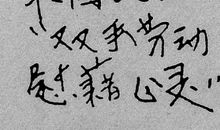 "双手劳动
慰藉心灵"